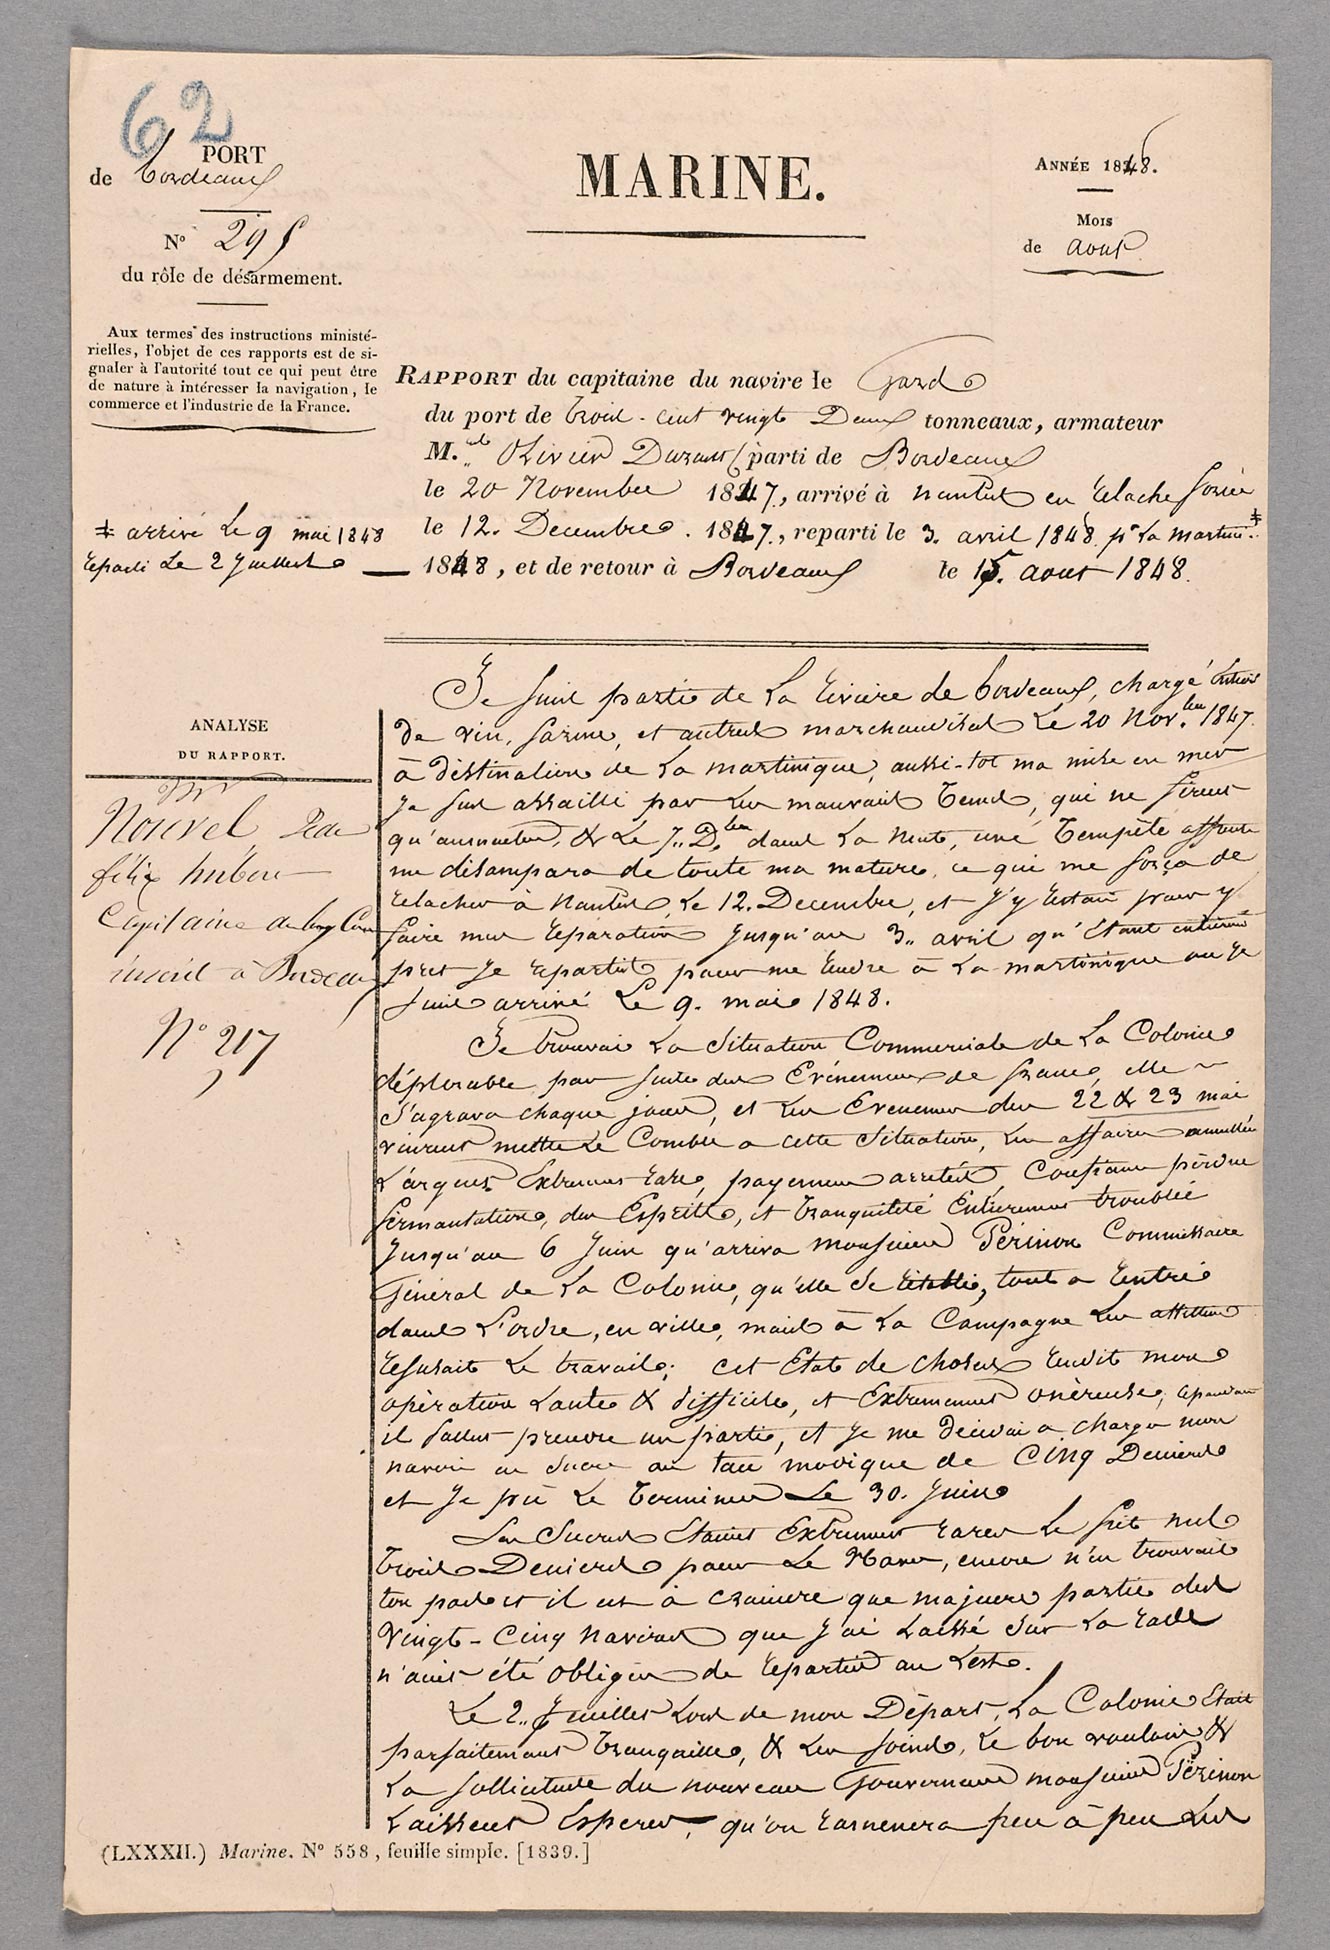 62
PORT
de bordeaux
N° 295
du rôle de désarmement.
Aux termes des instructions ministé-
rielles, l'objet de ces rapports est de si-
gnaler à l'autorité tout ce qui peut être
de nature à intéresser la navigation, le
commerce et l'industrie de la France.
MARINE.
ANNÉE 1848.
MOIS
de aout
RAPPORT du capitaine du navire le Gard
du port de trois-cent vingt Deux tonneaux, armateur
M. Olivier parti de Bordeaux
le 20 Novembre 1847, arrivé à nantes en relache forcée
le 12. Decembre. 1847, reparti le 3. avril 1848. pr La martini.. ‡
‡ arrivé Le 9 mai 1848
reparti Le 2 Juillet — 1848, et de retour à Bordeaux le 15. aout 1848.
ANALYSE
DU RAPPORT.
Nouvel
félix hubert
Capitaine au long Cours
inscrit à Bordeaux
N° 217
Je suis partie de La riviere de bordeaux, chargé
de vin, farine, et autres marchandises Le 20 Nov.bre 1847.
à destination de La martinique, aussi-tot ma mise en mer
Je fus assailli par les mauvais tems, qui ne firent
qu'augmenter, & Le 7.. D.bre dans La Nuit, une Tempête affreuse
me désampara de toute ma mature, ce qui me força de
relacher à Nantes, Le 12. Decembre, et J'y restai pour y
faire mes reparations Jusqu'au 3.. avril qu'étant entièremt
pret Je repartis pour me rendre à La martinique ou Je
suis arrivé Le 9. mai 1848.
Je trouvai La Situation Commerciale de La Colonie
déplorable, par suite des Evénemens de france, elle
s'agrava chaque jour, et Les Evenemens des 22 & 23 mai
vinrent mettre Le Comble a cette Situation, Les affaires annullées
L'argent Extremement rare, payemens arretés, Confiance perdue
fermantation des Esprits, et tranquilité Entierement troublée
Jusqu'au 6 Juin qu'arriva monsieur Périnon Commissaire
Général de La Colonie, qu'elle se rétablie, tout a rentré
dans L'ordre, en ville, mais à La Campagne Les
refusait Le travail; cet Etat de choses rendit mon
opération Lente & difficile, et Extremement onèreuse, cependant
il fallut prendre un partie, et Je me décidai a charger mon
navire en Sucre au taux modique de Cinq Deniers
et Je pus Le Terminer Le 30. Juin
Les Sucres Etaient Extremement rares Le fret nul
trois Deniers pour Le Havre, encore n'en trouvait
ton pas et il est à craindre que majeure partie des
Vingt-Cinq navires que J'ai Laissé sur La rade
n'aient été obligés de repartir au Lest.
Le 2.. Juillet Lors de mon Départ, La Colonie Etait
parfaitement tranquille, & Les soins, Le bon vouloir &
La sollicitude du nouveau Gouverneur monsieur Périnon
Laissent Esperer, qu'on ramenera peu à peu Les
(LXXXII.) Marine. N° 558, feuille simple. [1839.]